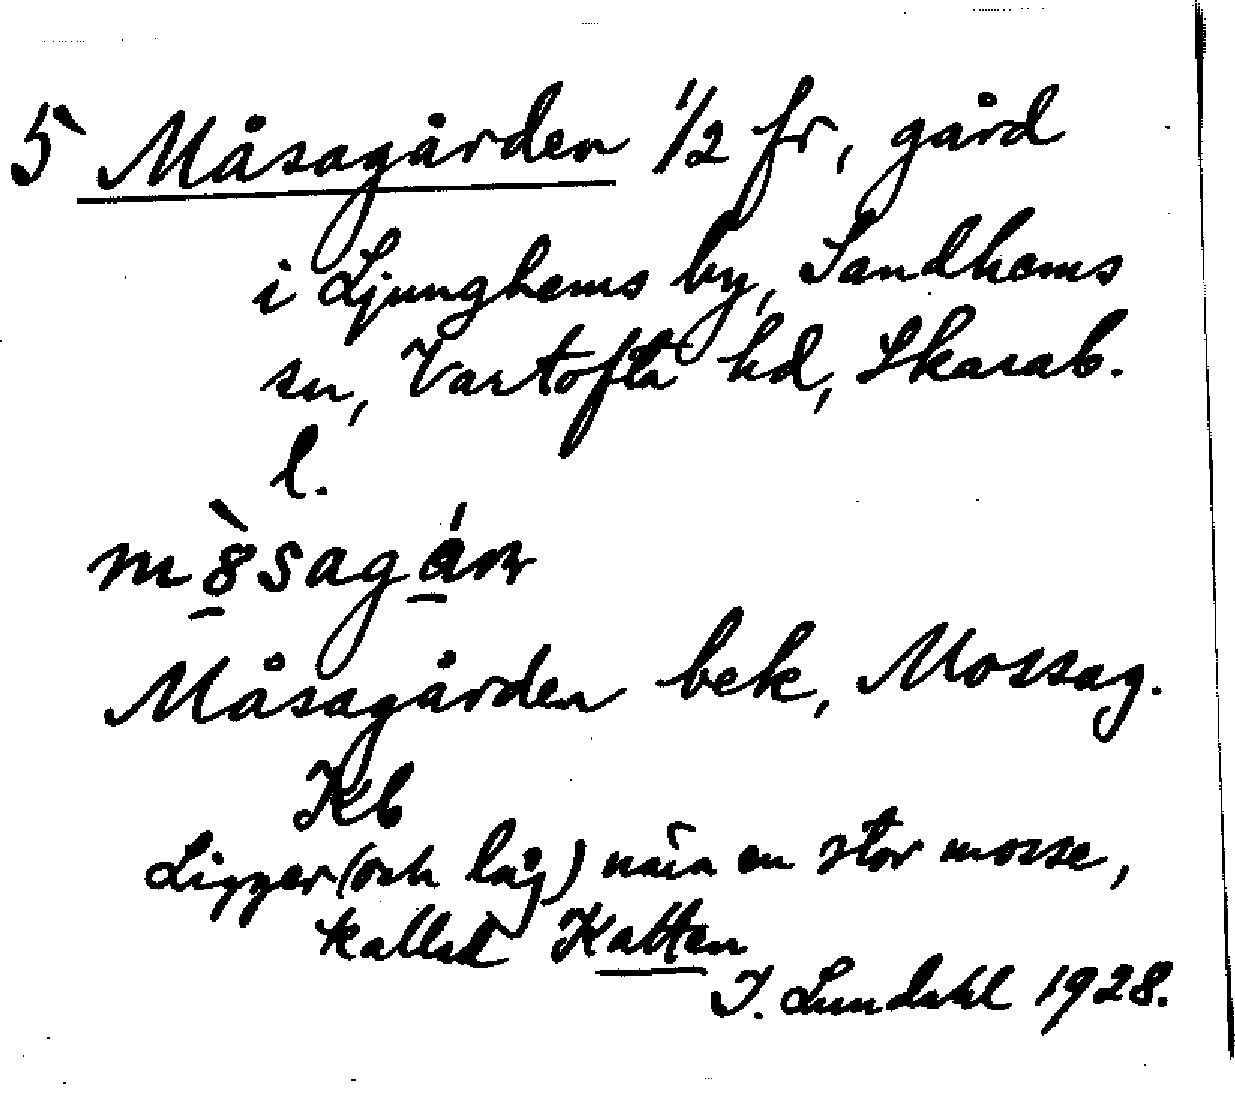 5 Måsagården 1/2 fr, gård
i Ljunghems by, Sandhems
sn, Vartofta hd, Skarab.
l.
Måsagården bek, Mossag.
Kb
Ligger (och låg) nära en stor mosse,
kallad Katten
I. Lundahl 1928.